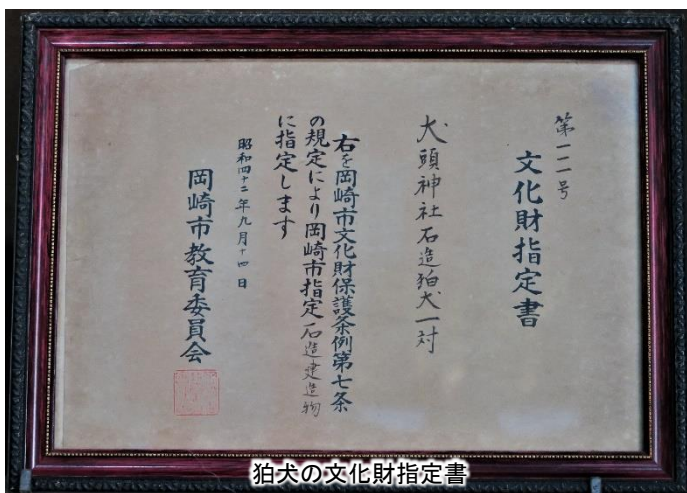 第一一一号
文化財指定書
犬頭神社石造狛犬一対
右を岡崎市文化財保護条例第七条
の規定により岡崎市指定石造建造物
に指定します
昭和四十二年九月十四日
岡崎市教育委員会
狛犬の文化財指定書